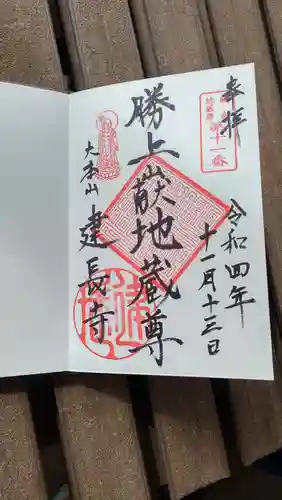 奉拝
第十一番
令和四年
十一月十三日
勝上嶽地蔵尊
大本山
建長寺